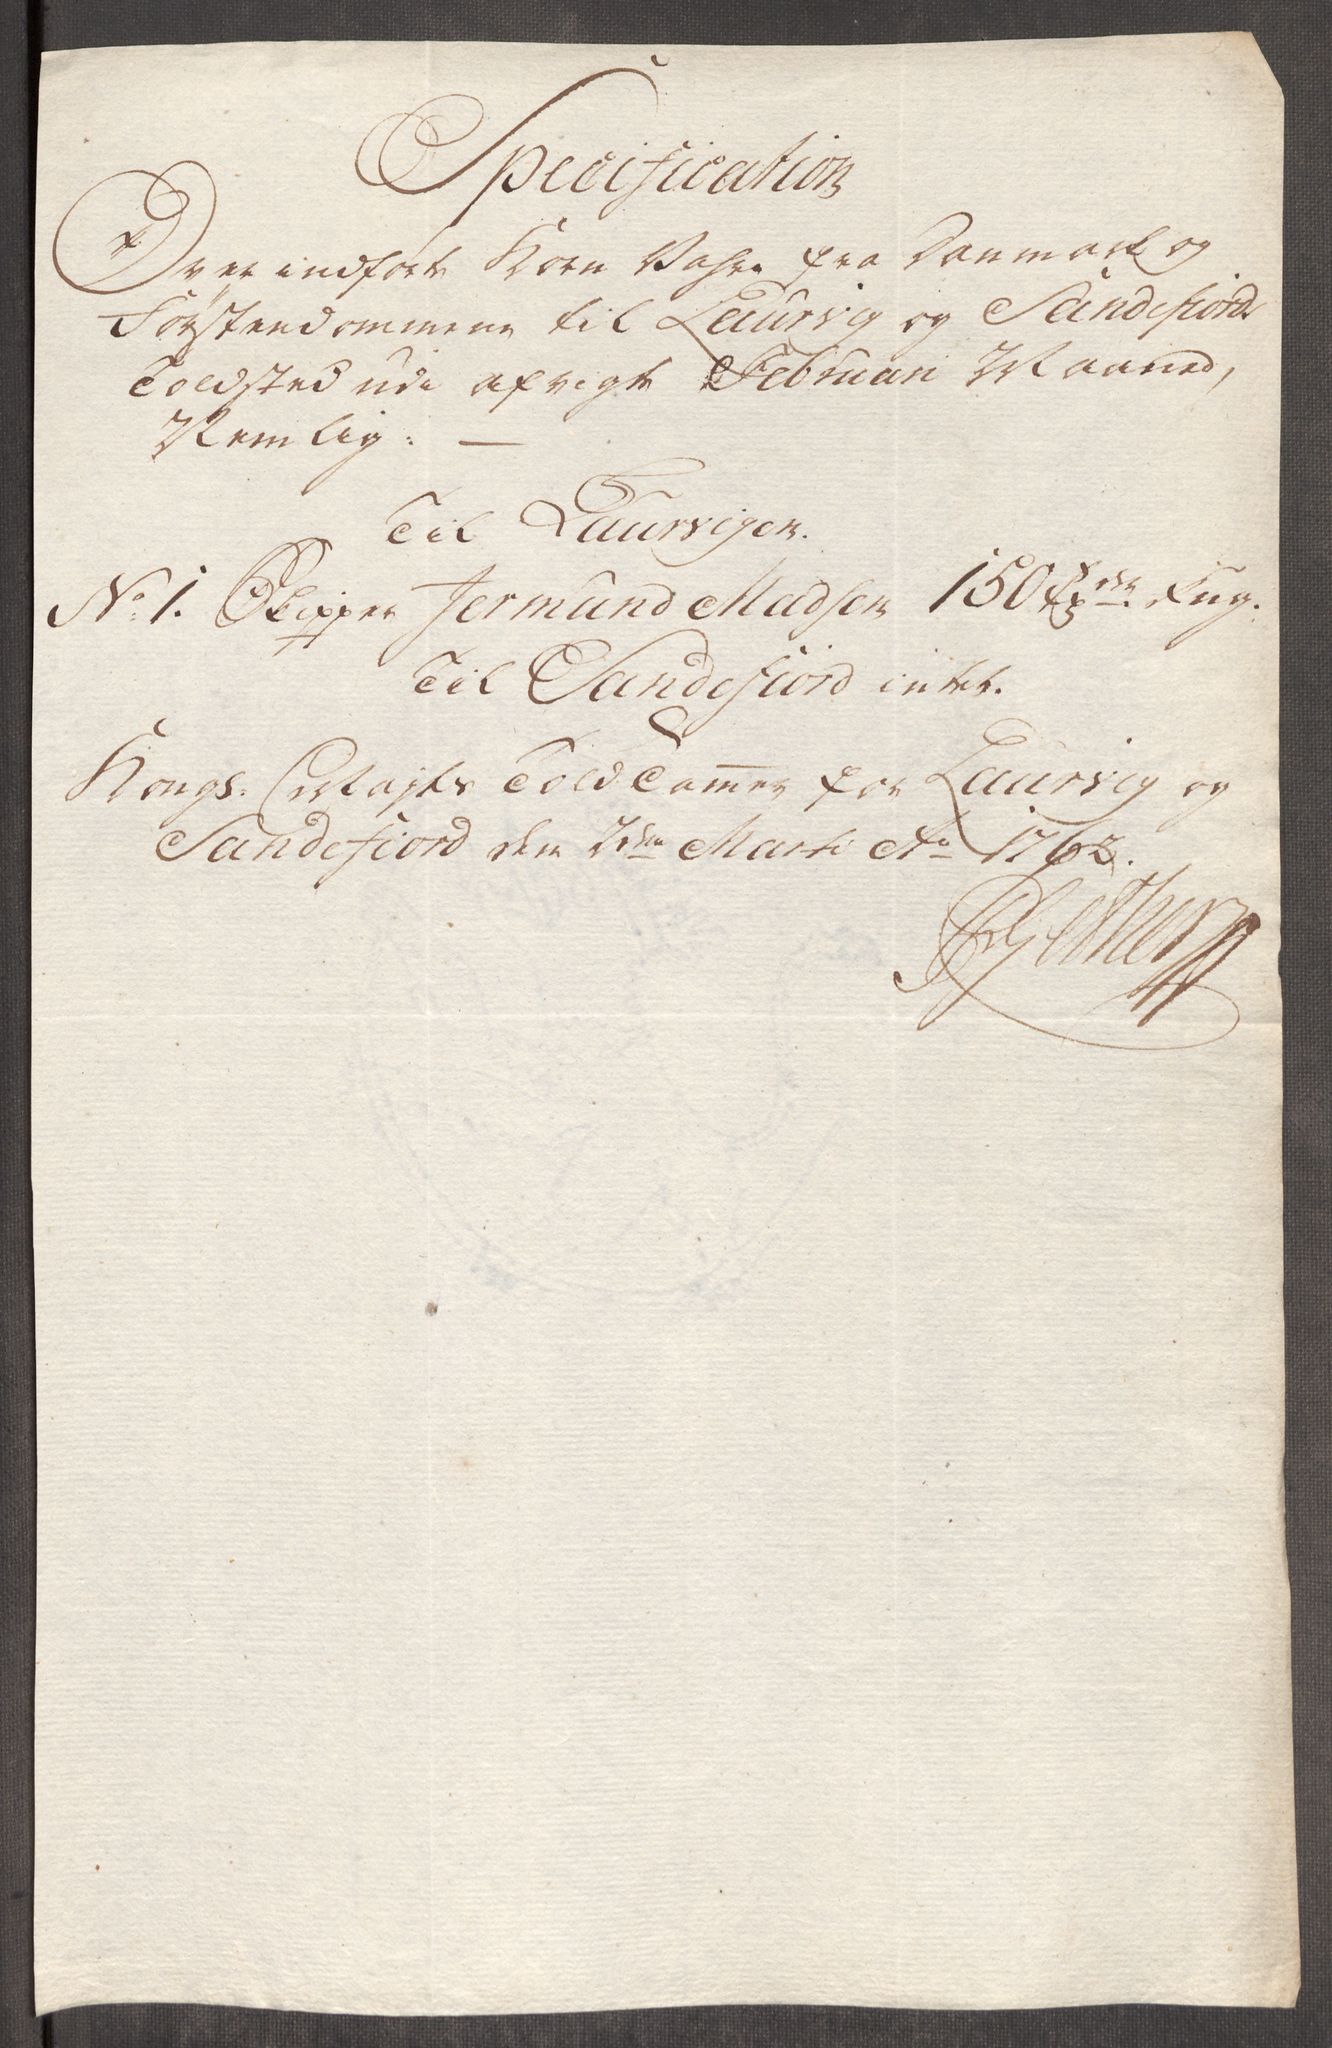 Specification
Over indførte Korn Vahre fra Danmark og
Førstendommene til Laurvig og Sandefiord
Toldsted udi afvigte Februari Maaned,
Nemlig: —
Til Laurvigen.
No 1. Skipper Jermund Madsen 150 Tdr Rug.
Til Sandefiord intet.
Kongl. Mayts Told Cammer for Laurvig og
Sandefiord den 2den Marti Ao 1763.